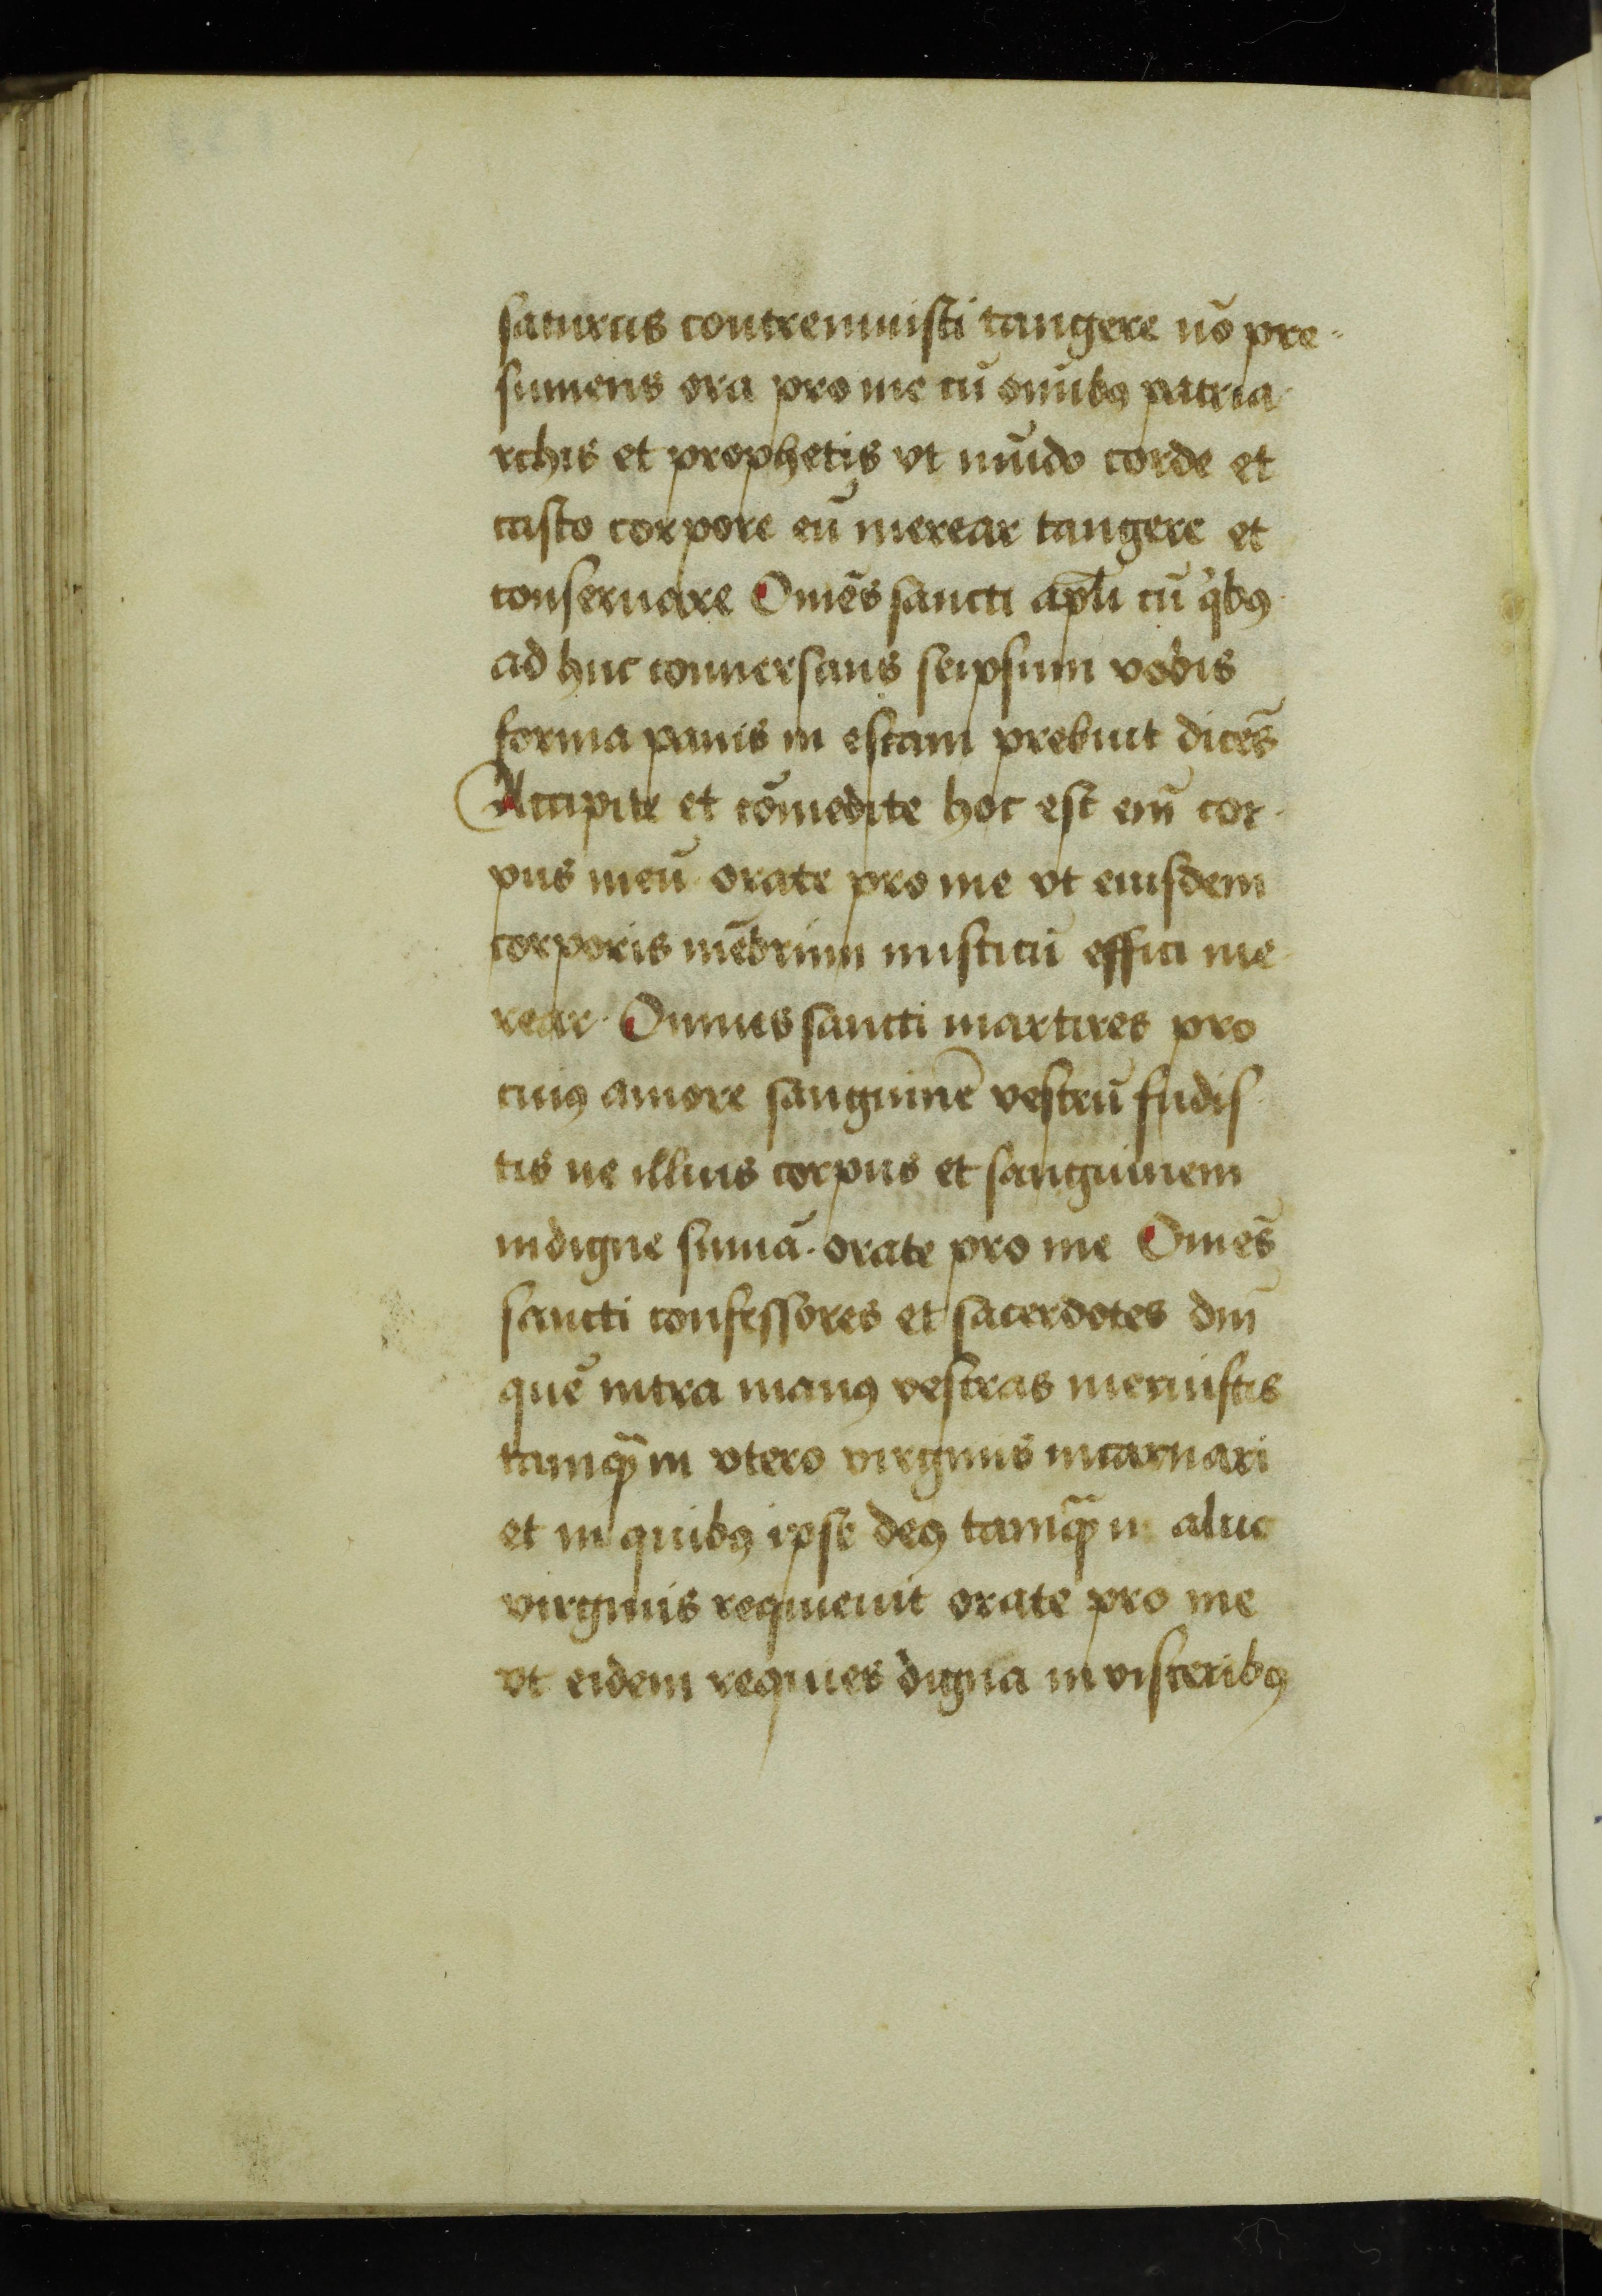 saturus contremuisti tangere nō pre-
sumens ora pro me cū om̄ibꝰ patria
rchis et prophetis vt mūdo corde et
casto corpore eū merear tangere et
conseruare Om̄es sancti apl̄i cū qͥbꝰ
ad huc conuersans seipsum vobis
forma panis in escam prebuit dicēs
Accipite et cōmedite hoc est eni̅ cor
pus meū orate pro me vt eiusdem
corporis mēbrum misticū effici me
rear Omnes sancti martires pro
cuiꝰ amore sanguinē vestrū fudis
tis ne illius corpus et sanguinem
indigne sumā. orate pro me Om̄es
sancti confessores et sacerdotes dm̄
quē intra manꝰ vestras meruistis
tamqꝫ̄ in vtero virginis incarnari
et in quibꝰ ipse deꝰ tamqꝫ̄ in aluo
virginis requieuit orate pro me
vt eidem requies digna in visceribꝰ